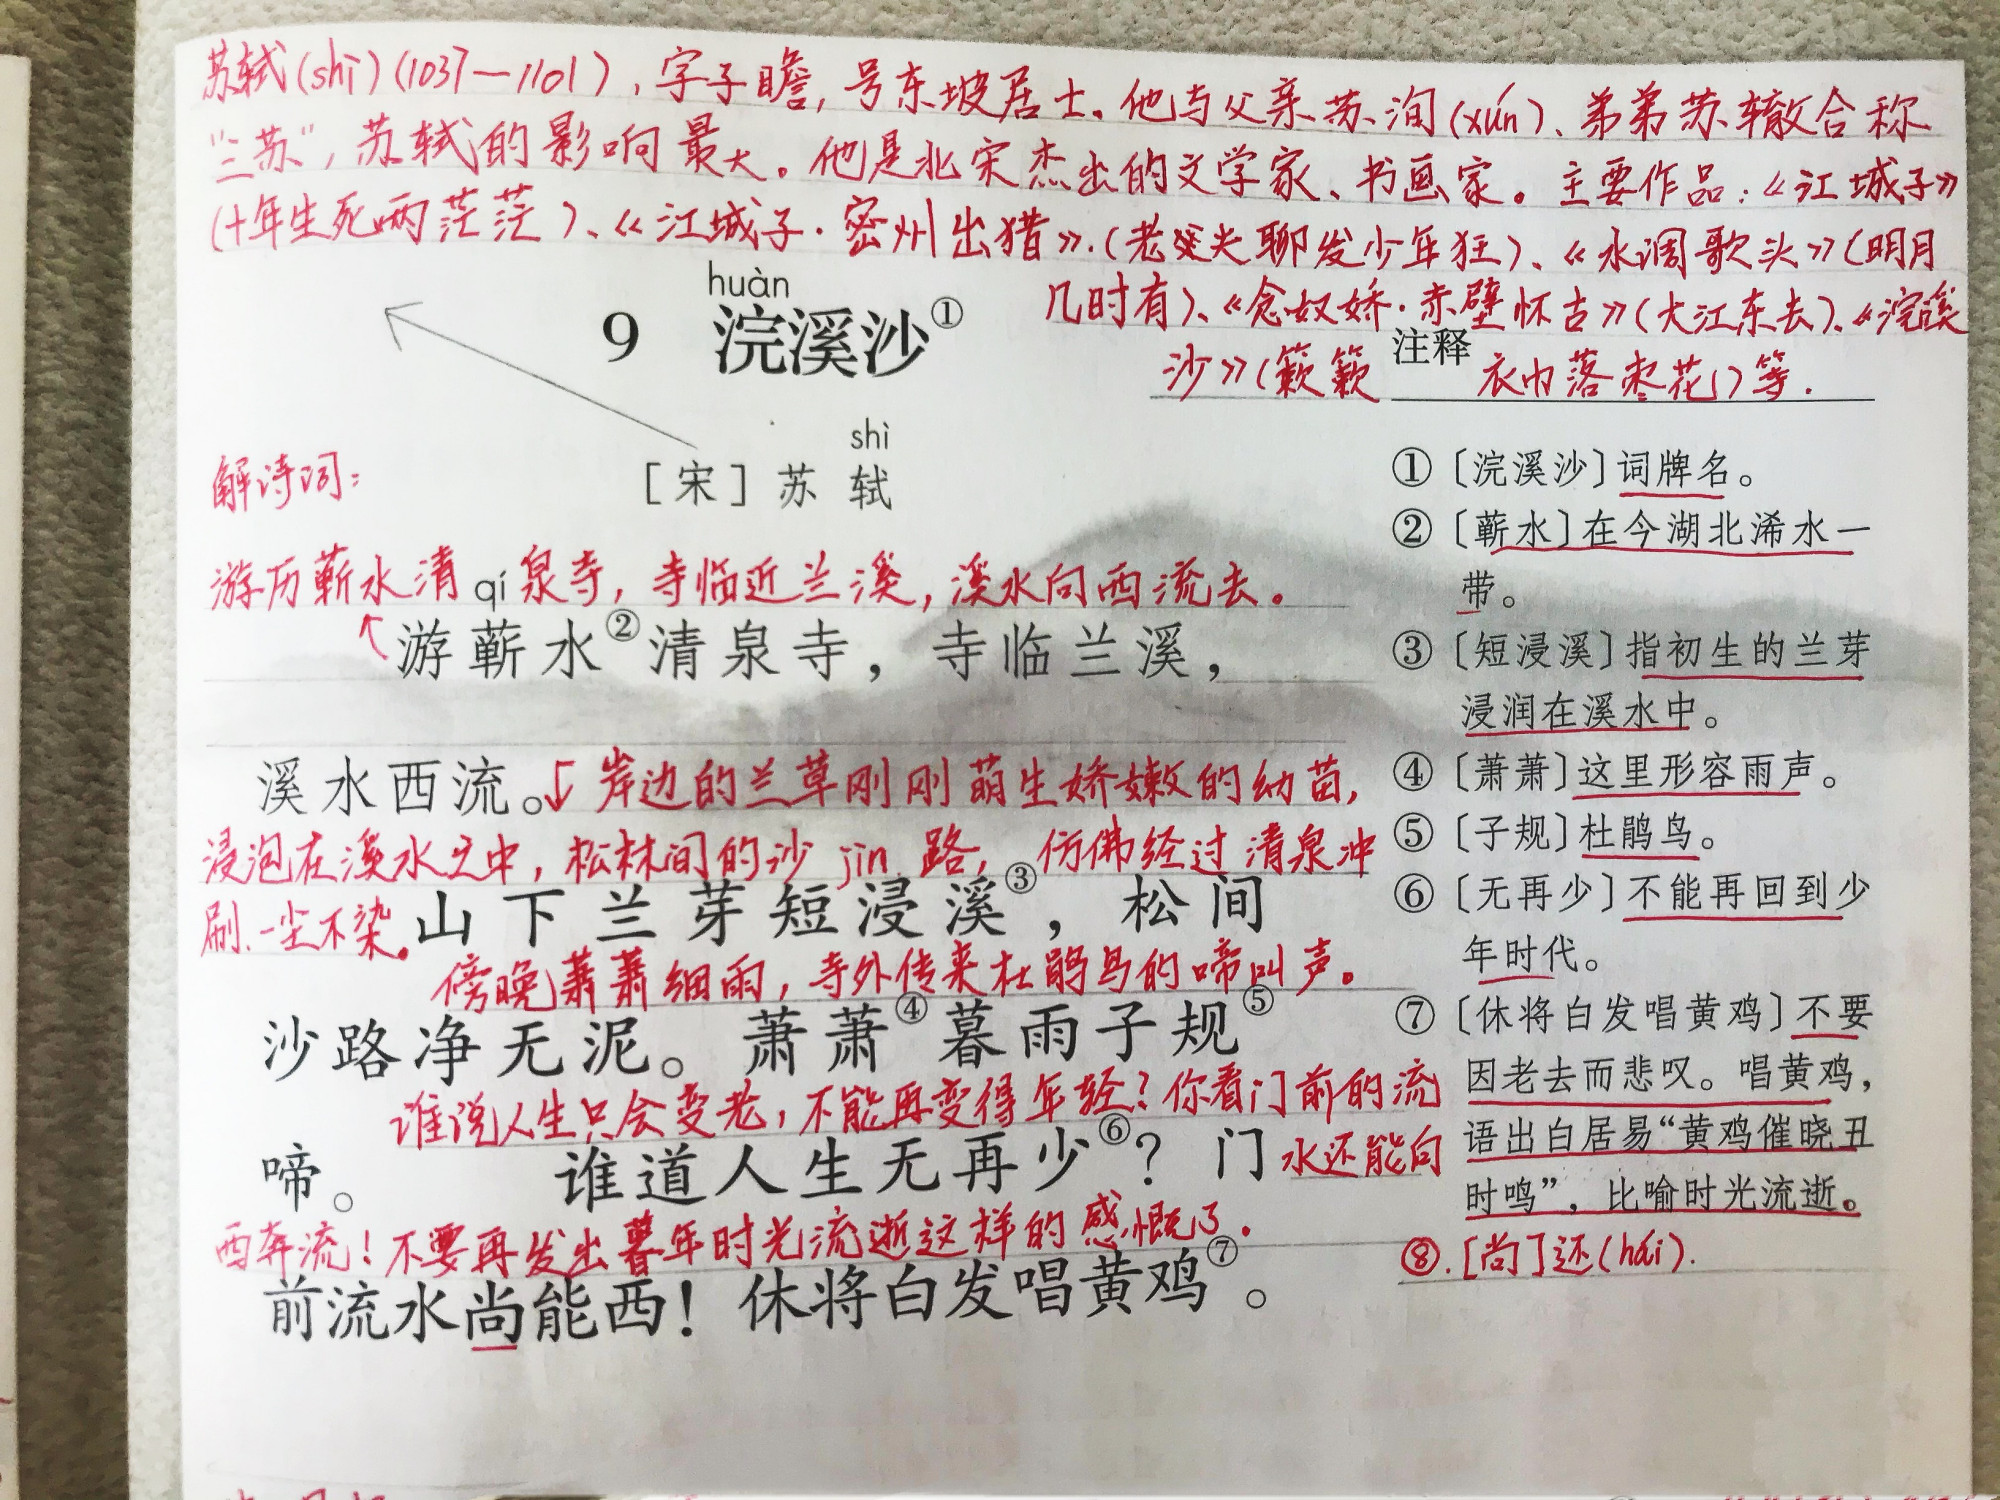 苏轼(shì)(1037—1101),字子瞻,号东坡居士。他与父亲苏洵(xún)、弟弟苏辙合称
“三苏”,苏轼的影响最大。他是北宋杰出的文学家、书画家。主要作品:《江城子》
(十年生死两茫茫)、《江城子·密州出猎》·(老夫聊发少年狂)、《水调歌头》(明月
几时有)、《念奴娇·赤壁怀古》(大江东去)、《浣溪
沙》(簌簌衣巾落枣花)等.
huàn
9 浣溪沙①
shì
[宋] 苏轼
解诗词:
游历蕲水清泉寺,寺临近兰溪,溪水向西流去。
qí
游蕲水②清泉寺,寺临兰溪,
溪水西流。
岸边的兰草刚刚萌生娇嫩的幼苗,
浸泡在溪水之中,松林间的沙路,仿佛经过清泉冲
刷、一尘不染。
jìn
山下兰芽短浸溪③,松间
傍晚萧萧细雨,寺外传来杜鹃鸟的啼叫声。
沙路净无泥。萧萧④暮雨子规⑤
谁说人生只会变老,不能再变得年轻?你看门前的流
水还能向
啼。 谁道人生无再少⑥?门
西奔流!不要再发出暮年时光流逝这样的感慨了.
前流水尚能西!休将白发唱黄鸡⑦。
注释
①〔浣溪沙〕词牌名。
②〔蕲水〕在今湖北浠水一
带。
③〔短浸溪〕指初生的兰芽
浸润在溪水中。
④〔萧萧〕这里形容雨声。
⑤〔子规〕杜鹃鸟。
⑥〔无再少〕不能再回到少
年时代。
⑦〔休将白发唱黄鸡〕不要
因老去而悲叹。唱黄鸡,
语出白居易“黄鸡催晓丑
时鸣”,比喻时光流逝。
⑧.[尚]还(hái).